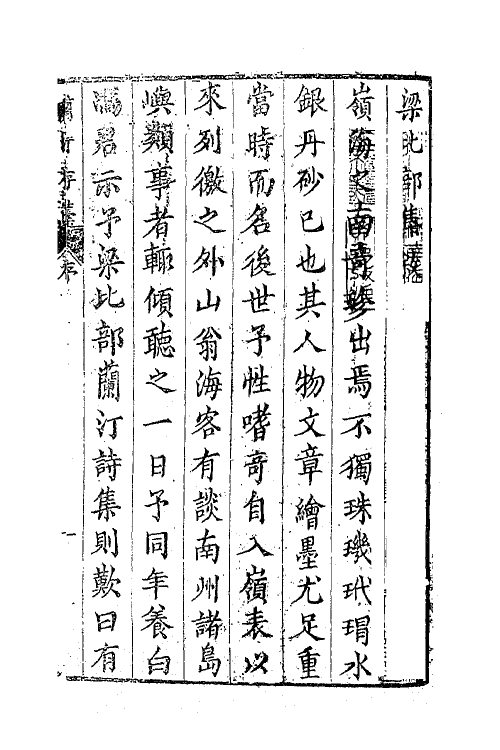 梁比部
嶺海之南奇珍出焉不獨珠璣玳瑁水
銀丹砂已也其人物文章繪墨尤足重
當時而名後世予性嗜奇自入嶺表以
來列徼之外山翁海客有談南州諸島
嶼類事者輒傾聽之一日予同年養白
馮君示予梁比部蘭汀詩集則歎曰有
蘭汀存藁 序 一